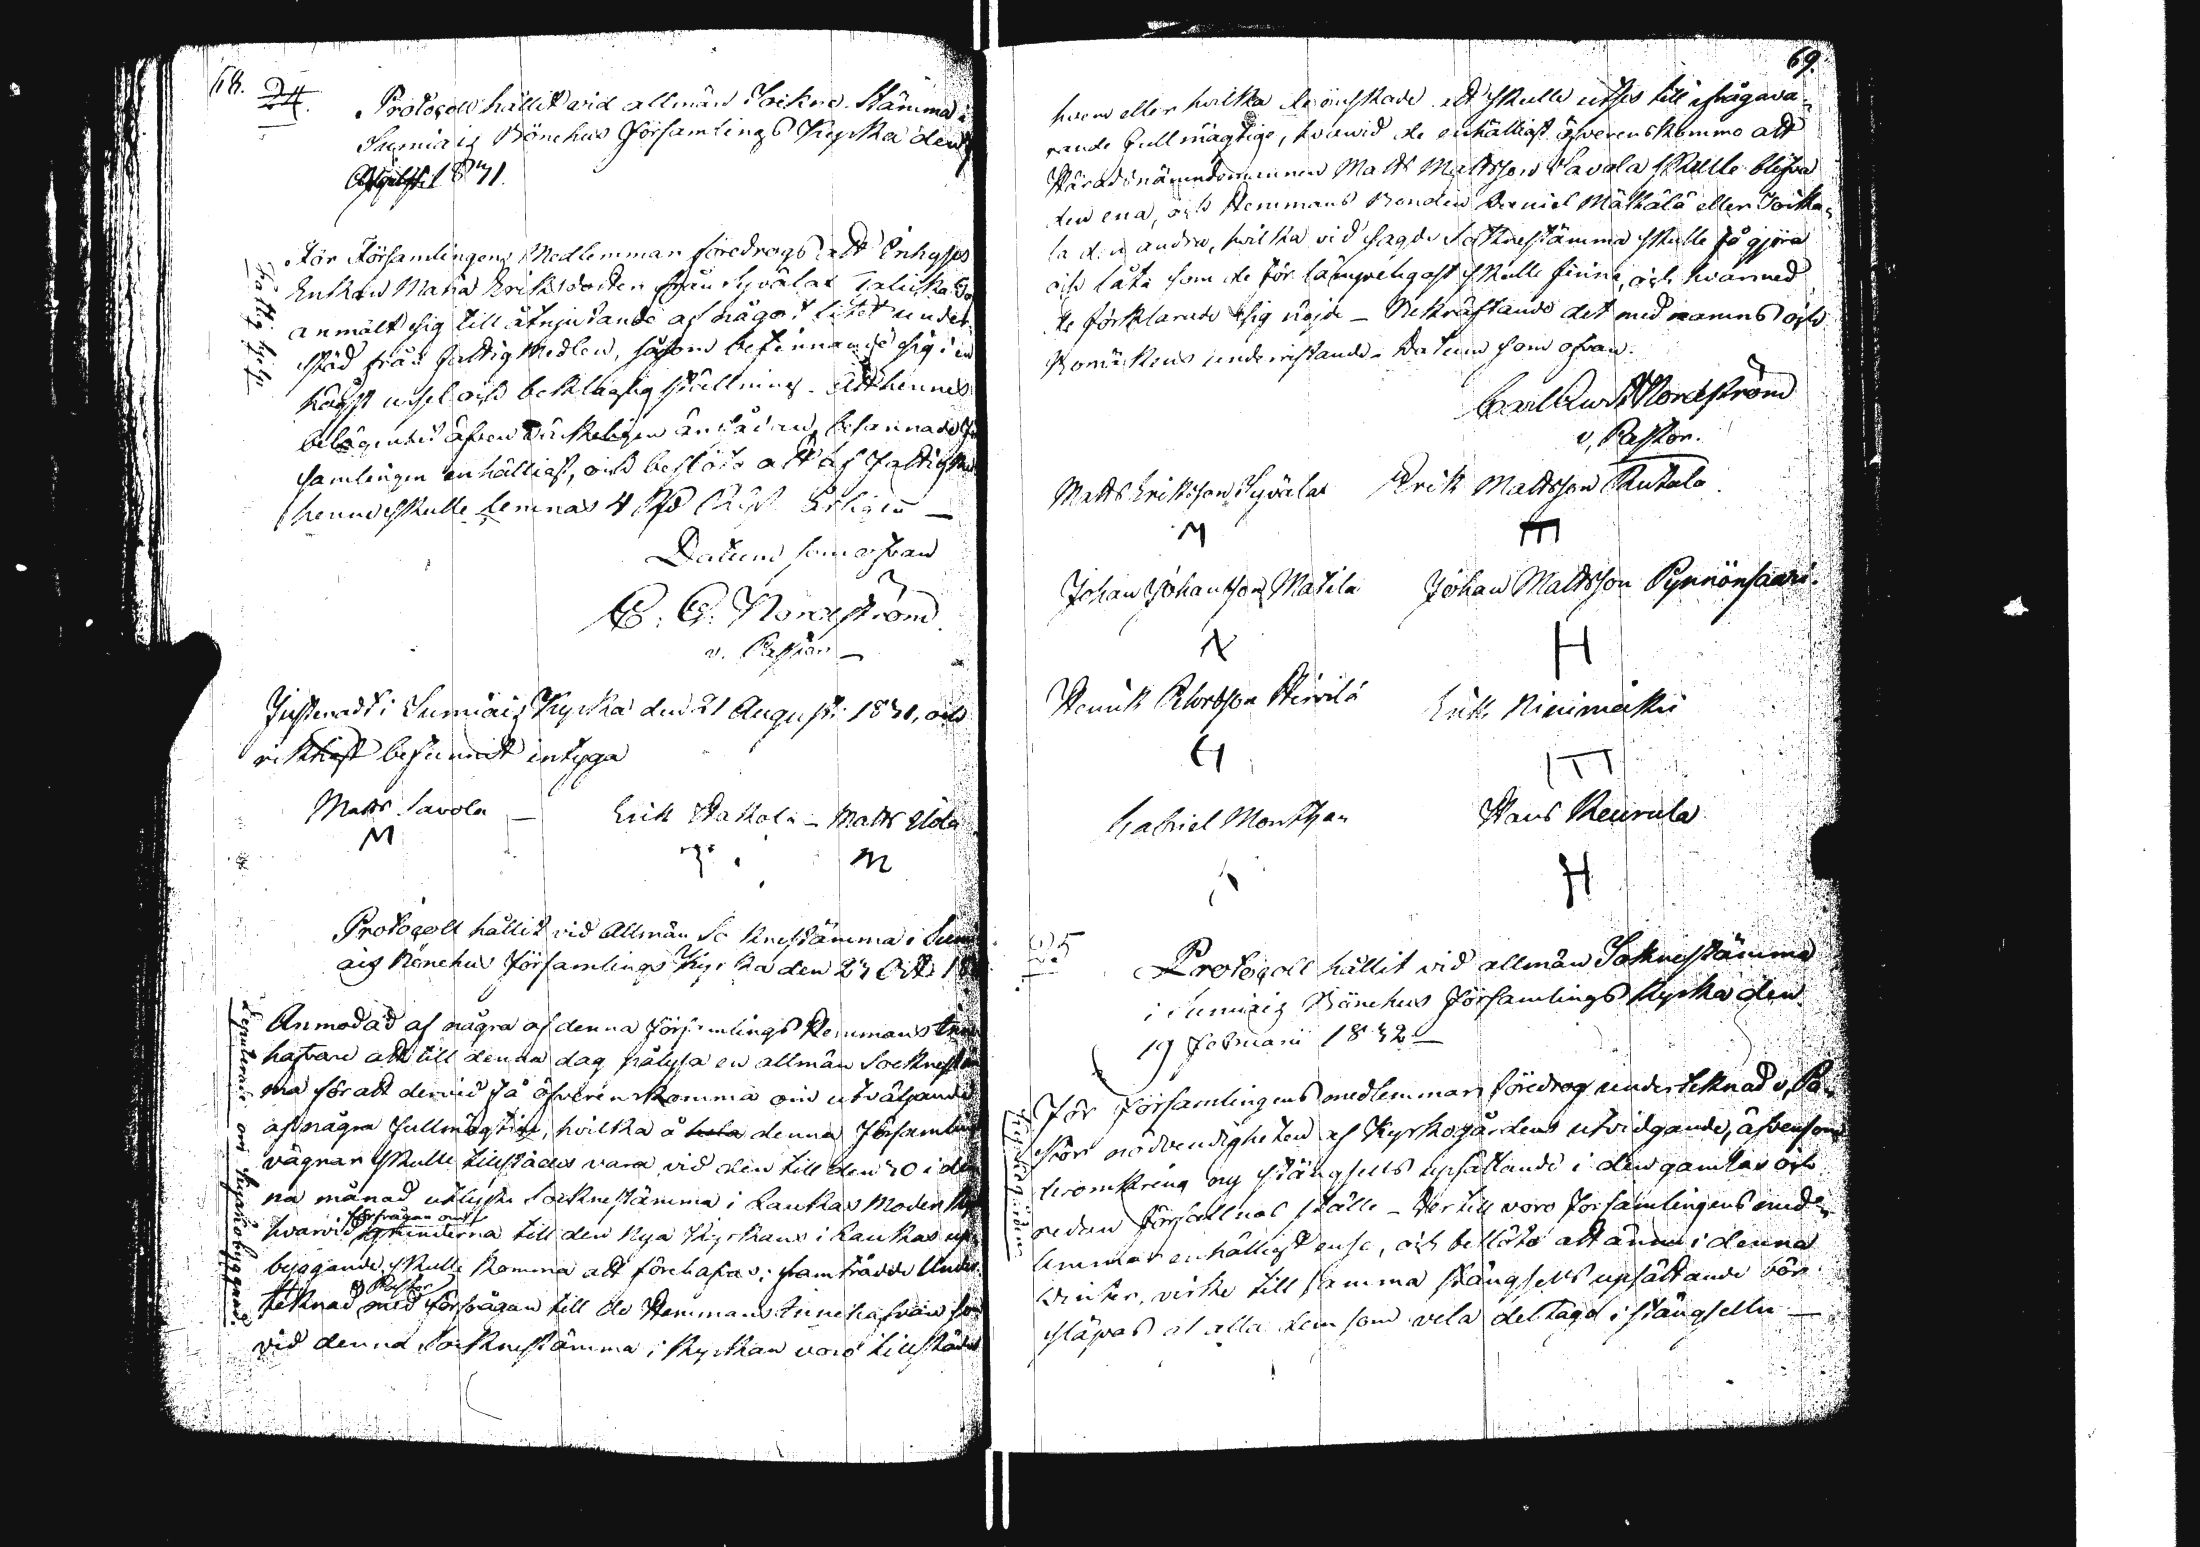 68.
24.
Protocoll hållit vid allmän Sockne-Stämma i
Sumiais Bönehus Församlings Kyrka den
Augusti 1831.
Fattighjelp
För Församlingens Medlemmar föredrogs att Inhyses
Enkan Maria Eriksdotter från Syvälax
anmält sig till åtnjutande af något litet under-
stöd från Fattigmedlen, såsom befinnande sig i en
högst usel och beklaglig ställning. Att hennes
belägenhet äfven värkeligen än sådan, besannade För
samlingen enhälligt, och beslöts att af Fattig
henne skulle lemnas 4 årligen —
Datum som ofvan
C. G. Nordström
v. Pastor —
Justeradt i Sumiais Kyrka den 21 Augusti 1831, och
riktigt befunnit intyga
Matts Savola — Erik Hakola — Matts Elola
M M
Protocoll hållit vid Allmän Socknestämma i Sumi
ais Bönehus Församlings Kyrka den 23 Oct: 18
Deputerade om kyrkobyggnad.
Anmodad af några af denna Församlings Hemmans Inne
hafvare att till denna dag pålysa en allmän Socknestäm
ma för att dervid få öfverenskomma om utväljande
af några fullmägtige, hvilka å hela denna Församlings
vägnar skulle tillstädes vara vid den till den 30 i den
na månad utlyste Socknestämma i Laukas Moder Kyrka
hvarvid förfrågan om grunderna till den Nya Kyrkans i Laukas up-
byggande skulle komma att förehafvas; framträdde Under-
teknad v. Pastor med förfrågan till de Hemmans Innehafvare som
vid denna Socknestämma i Kyrkan voro tillstädes
69.
hvem eller hvilka de önskade att skulle utses till ifrågava-
rande Fullmägtige, hvarvid de enhälligt öfverenskommo att
Häradsnämndemannen Matts Mattsson Savola skulle blifva
den ena, och Hemmans Bonden Daniel Mähälä eller
den andra, hvilka vid sagde Socknestämma skulle få gjöra
och låta som de för lämpeligast skulle finna, och hvarmed
de förklarade sig nöjde — Bekräftande det med namns och
Bomärkens undersättande. Datum som ofvan.
Carl Gust Nordström
v. Pastor.
Matts Eriksson Syvälax Erik Mattsson Rutala
M
Johan Johansson Matila Johan Mattsson Pynnönsaari.
N H
Henrik Hirvilä Erik Niinimäki
H
Gabriel Montgan Hans Keurula
H
25
Protocoll hållit vid allmän Socknestämma
i Sumiais Bönehus Församlings Kyrka den
19 Februarii 1832 —
Kyrkogården
För Församlingens medlemmar föredrog underteknad v. Pa-
stor nödvendigheten af Kyrkogårdens utvidgande, äfvensom
deromkring ny stängsels upsättande i den gamlas och
redan förfallnas ställe — Dertill voro Församlingens med-
lemmar enhälligt ense, och beslöto att ännu i denna
Winter, virke till samma stängsels upsättande bör
släpas af alla dem som vela deltaga i stängseln —